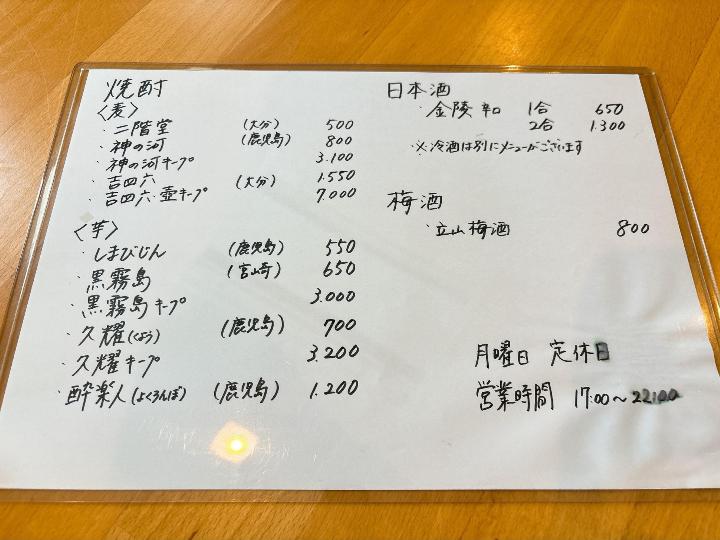 焼酎
〈麦〉
・二階堂 (大分) 500
・神の河 (鹿児島) 800
・神の河キープ 3.100
・吉四六 (大分) 1.550
・吉四六 壺キープ 7.000
〈芋〉
・しまびじん (鹿児島) 550
・黒霧島 (宮崎) 650
・黒霧島キープ 3.000
・久耀(くよう) (鹿児島) 700
・久耀キープ 3.200
・酔楽人(よくろんぼ) (鹿児島) 1.200
日本酒
・金陵 辛口 1合 650
2合 1.300
※冷酒は別にメニューがございます
梅酒
・立山梅酒 800
月曜日 定休日
営業時間 17:00〜22:00